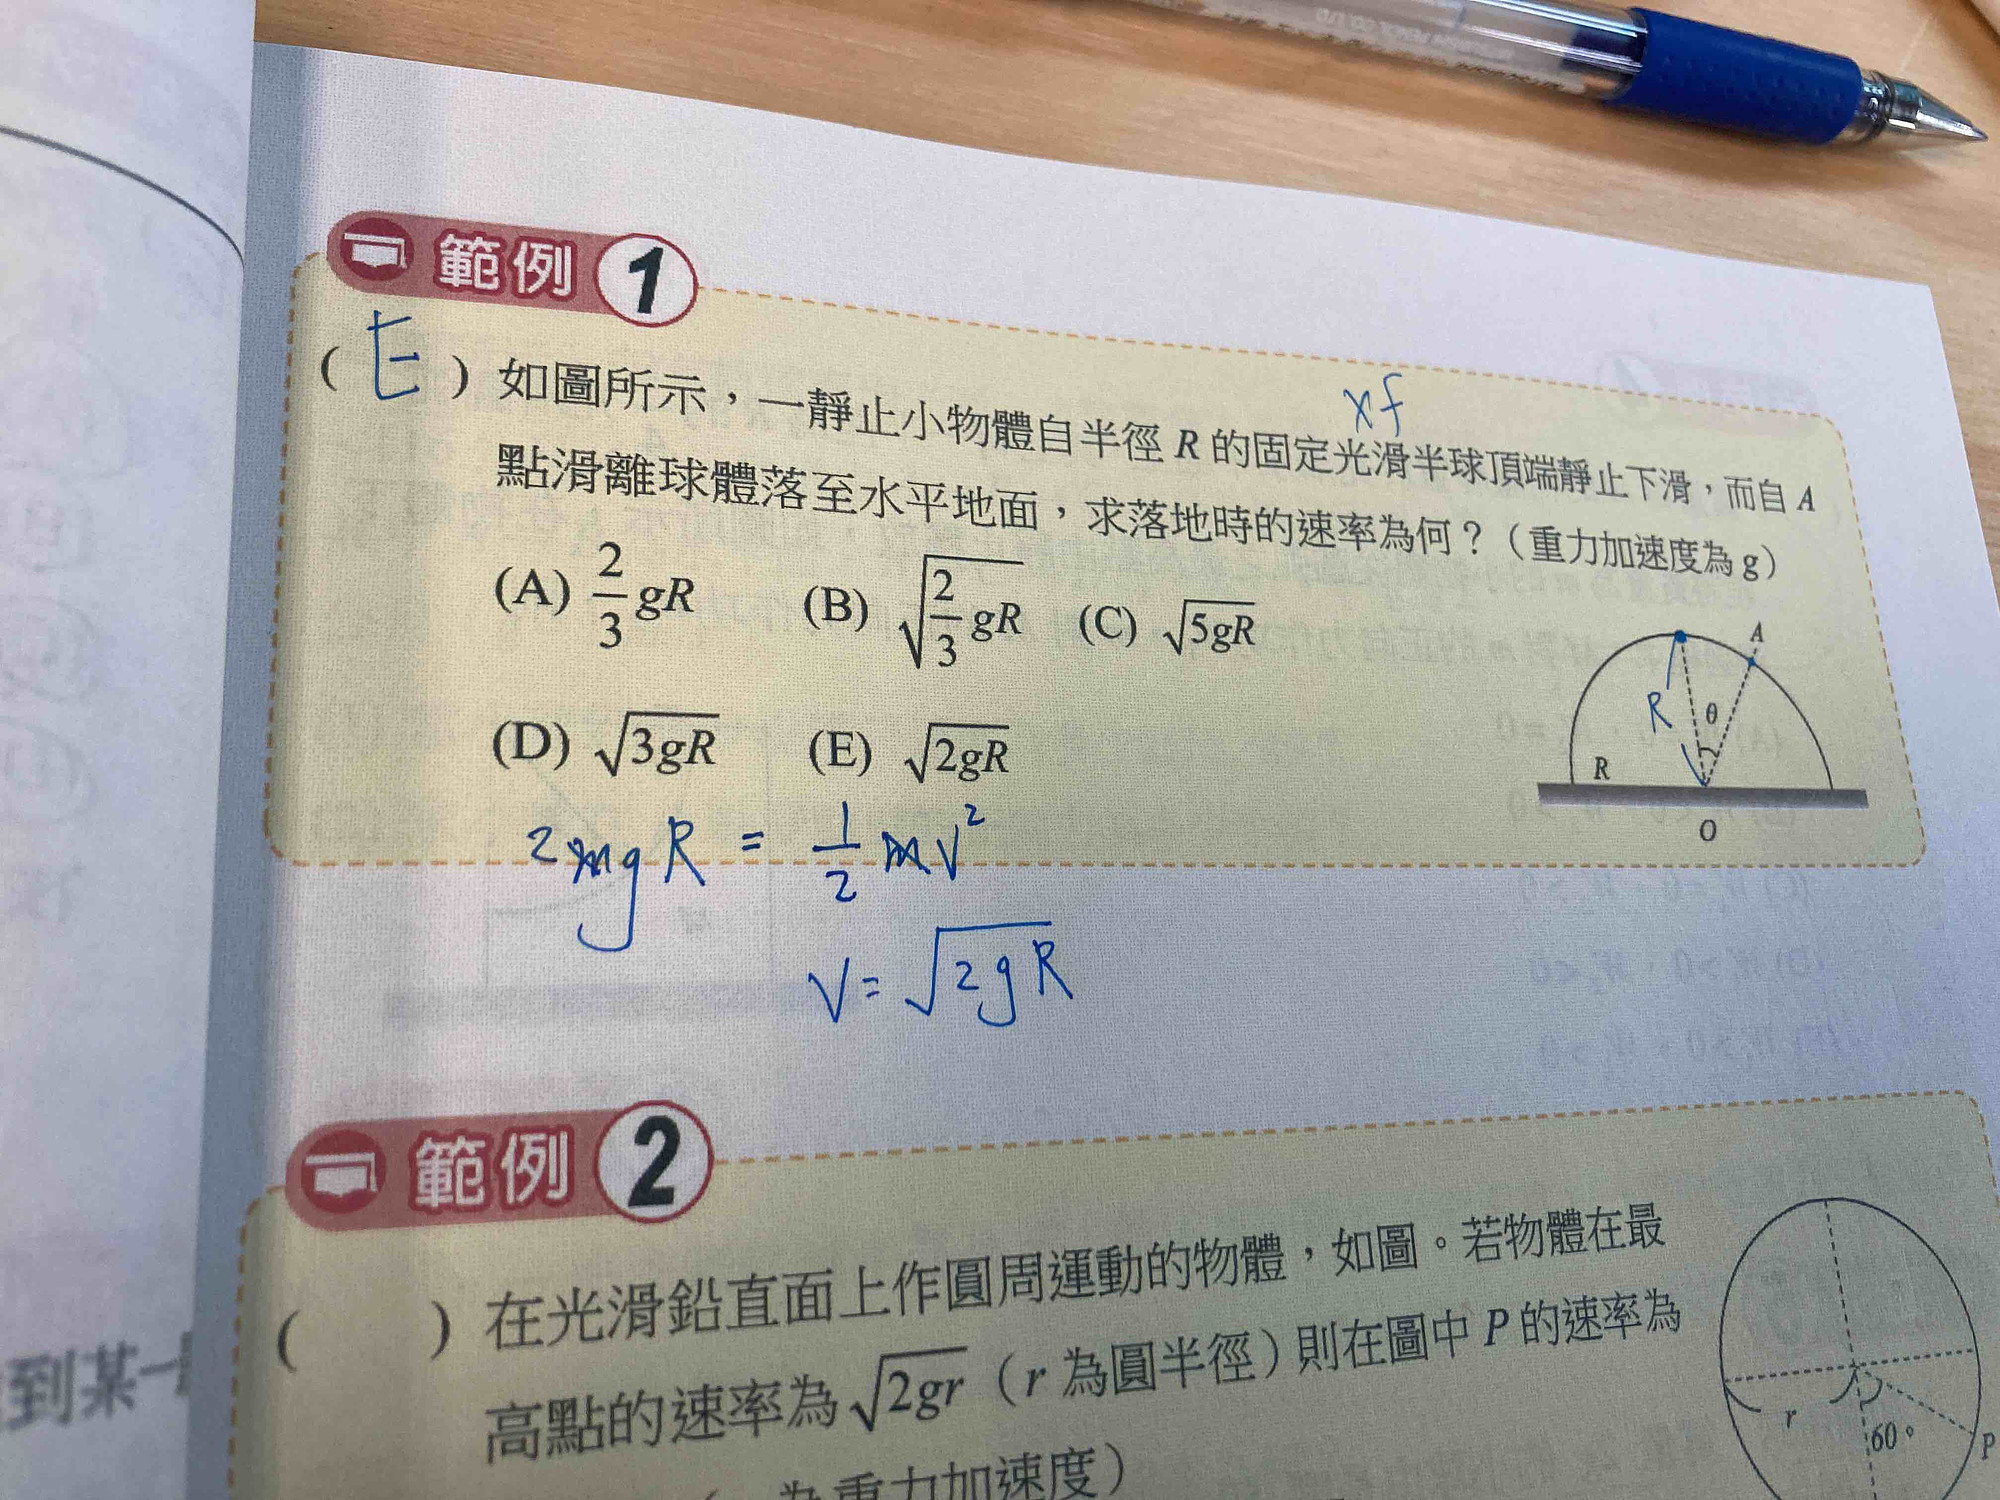 範例 1
( E ) 如圖所示，一靜止小物體自半徑 R 的固定光滑半球頂端靜止下滑，而自 A
xf
點滑離球體落至水平地面，求落地時的速率為何？（重力加速度為 g）
(A) 2/3 gR (B) √(2/3 gR) (C) √5gR
(D) √3gR (E) √2gR
A
R θ
R
O
2mgR = 1/2 mv²
v = √2gR
範例 2
( ) 在光滑鉛直面上作圓周運動的物體，如圖。若物體在最
高點的速率為 √2gr （r 為圓半徑）則在圖中 P 的速率為
為重力加速度）
r
60°
P
到某一